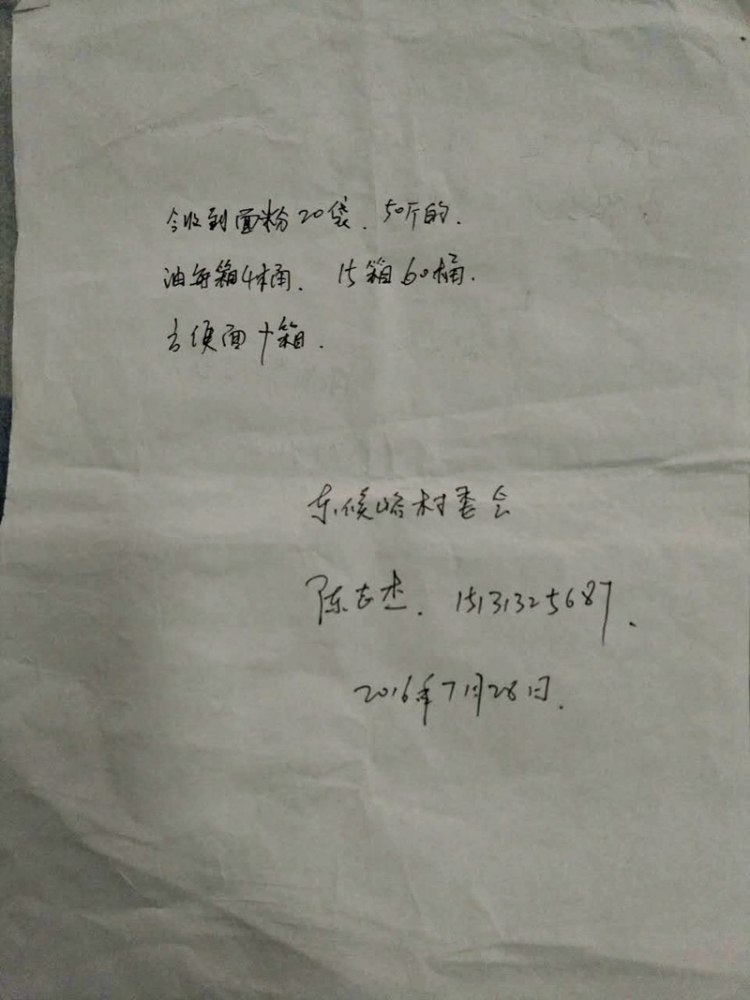 今收到面粉20袋．50斤的．
油每箱4桶．15箱60桶．
方便面十箱．
东侯峪村委会
陈志杰．15131325687．
2016年7月28日．